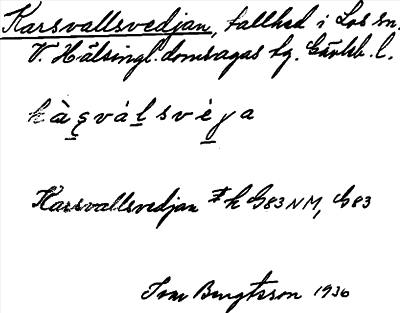 Karsvallsvedjan, tallhed i Los sn.
V. Hälsingl. domsagas tg. Gävleb. l.
kàşváḻsvèɟa
Karsvallsvedjan Ek G83 NM, G83
Bengtsson 1936